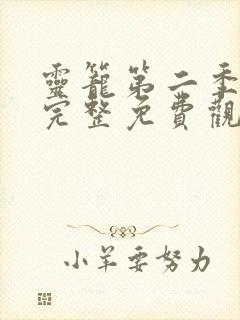 靈籠第二季
完整免費觀
小羊要努力